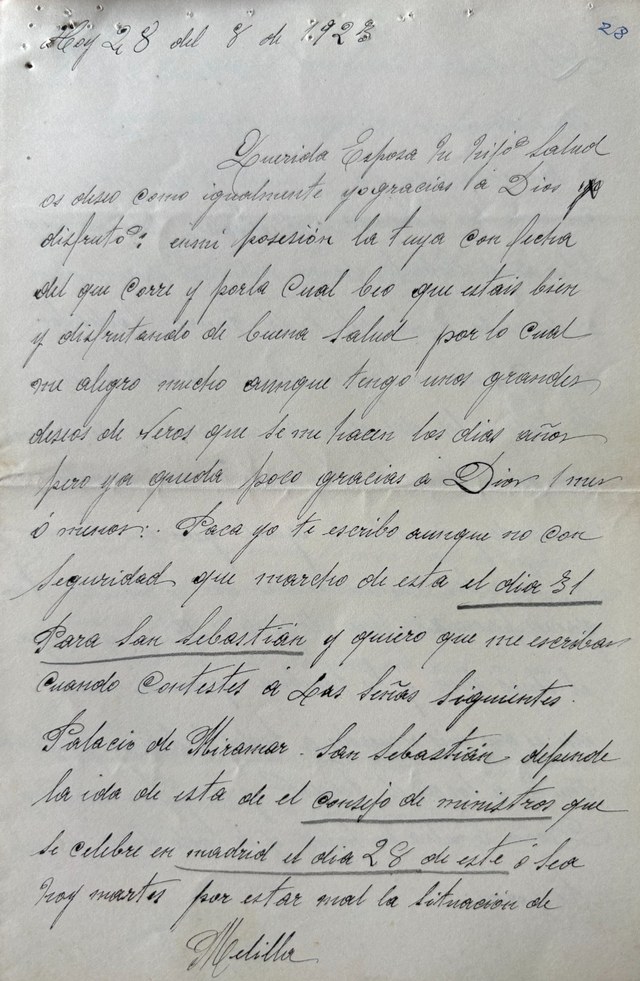 Hoy 28 del 8 de 1.923
28
Querida Esposa Hijos Salud
os deseo como igualmente yo gracias á Dios
disfruto: en mi posesión la tuya con fecha
del que corre y porla cual beo que estais bien
y disfrutando de buena Salud por lo cual
me alegro mucho aunque tengo unos grandes
deseos de veros que se me hacen los dias años
pero ya queda poco gracias á Dios 1 mes
ó menos:. Paca yo te escribo aunque no con
seguridad que marcho de esta el dia 31
Para San Sebastián y quiero que me escribas
cuando Contestes á Las Señas Siguientes.
Palacio de Miramar. San Sebastián depende
la ida de esta de el consejo de ministros que
se celebre en madrid el dia 28 de este ó sea
hoy martes por estar mal la situación de
Melilla